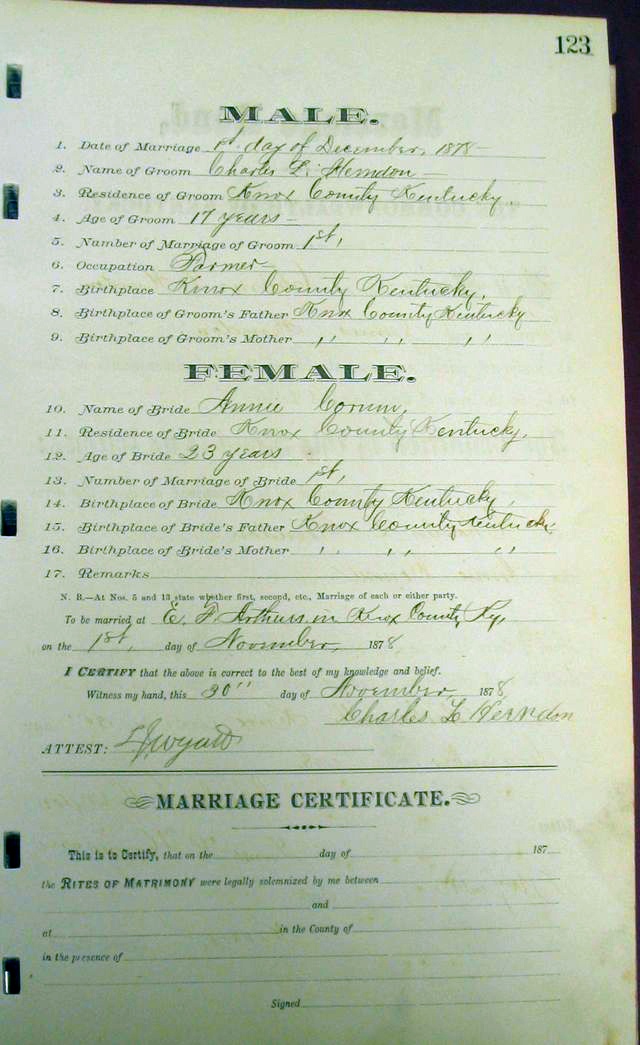 123
MALE.
1. Date of Marriage 1st day of December, 1878
2. Name of Groom Charles L. Herndon
3. Residence of Groom Knox County Kentucky.
4. Age of Groom 17 years
5. Number of Marriage of Groom 1st,
6. Occupation Farmer
7. Birthplace Knox County Kentucky,
8. Birthplace of Groom's Father Knox County Kentucky
9. Birthplace of Groom's Mother ,, ,, ,,
FEMALE.
10. Name of Bride Annie Corum,
11. Residence of Bride Knox County Kentucky.
12. Age of Bride 23 years
13. Number of Marriage of Bride 1st,
14. Birthplace of Bride Knox County Kentucky,
15. Birthplace of Bride's Father Knox County Kentucky
16. Birthplace of Bride's Mother ,, ,, ,,
17. Remarks
N. B.—At Nos. 5 and 13 state whether first, second, etc., Marriage of each or either party.
To be married at E. F. Arthurs in Knox County Ky,
on the 1st, day of November, 1878,
I CERTIFY that the above is correct to the best of my knowledge and belief.
Witness my hand, this 30" day of November, 1878,
Charles L Herndon
ATTEST: Wyatt
MARRIAGE CERTIFICATE.
This is to Certify, that on the day of 187
the RITES OF MATRIMONY were legally solemnized by me between
and
at in the County of
in the presence of
Signed